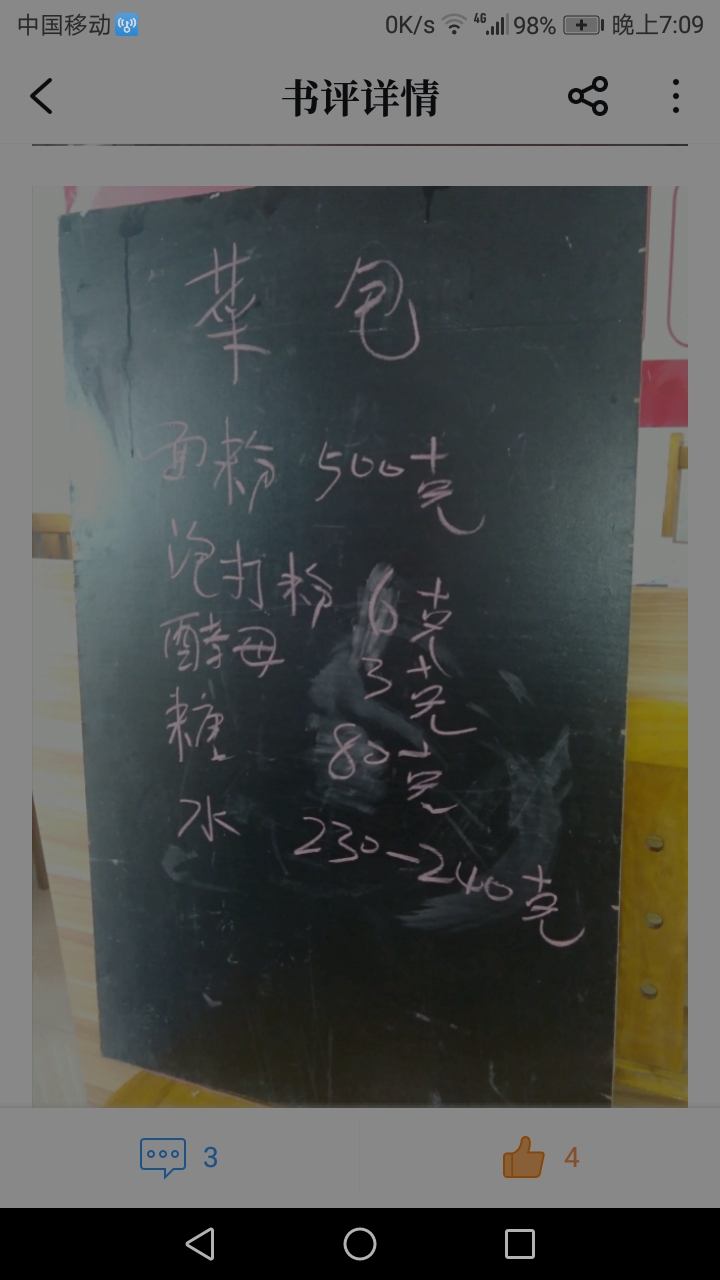 中国移动 0K/s 4G 98% 晚上7:09
书评详情
菜包
面粉 500克
泡打粉 6克
酵母 3克
糖 80克
水 230-240克
3 4